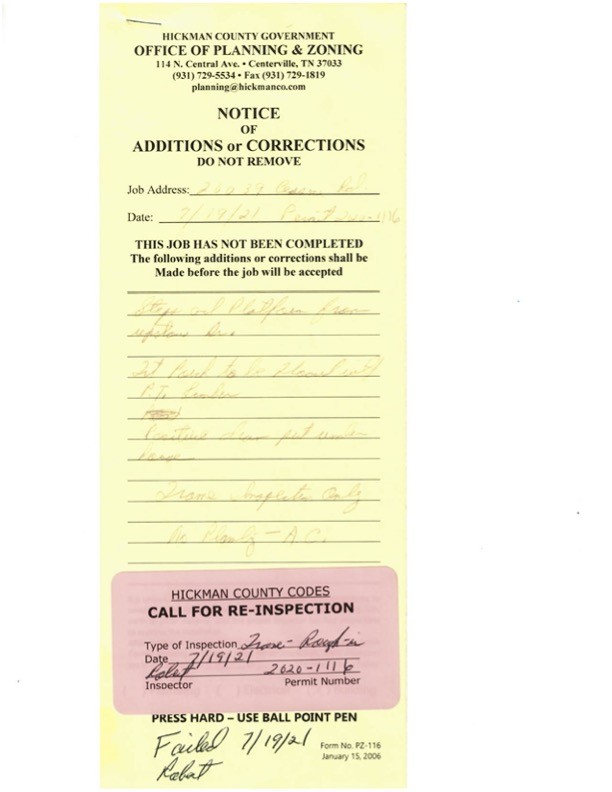 HICKMAN COUNTY GOVERNMENT
OFFICE OF PLANNING & ZONING
114 N. Central Ave. • Centerville, TN 37033
(931) 729-5534 • Fax (931) 729-1819
planning@hickmanco.com
NOTICE
OF
ADDITIONS or CORRECTIONS
DO NOT REMOVE
Job Address:
Date: 7/19/21
THIS JOB HAS NOT BEEN COMPLETED
The following additions or corrections shall be
Made before the job will be accepted
Steps and Platform from
to be
P.T.
put under
Inspection Only
HICKMAN COUNTY CODES
CALL FOR RE-INSPECTION
Type of Inspection Frame - Rough-in
Date 7/19/21
Robert 2020-1116
Inspector Permit Number
PRESS HARD – USE BALL POINT PEN
Failed 7/19/21
Robert
Form No. PZ-116
January 15, 2006